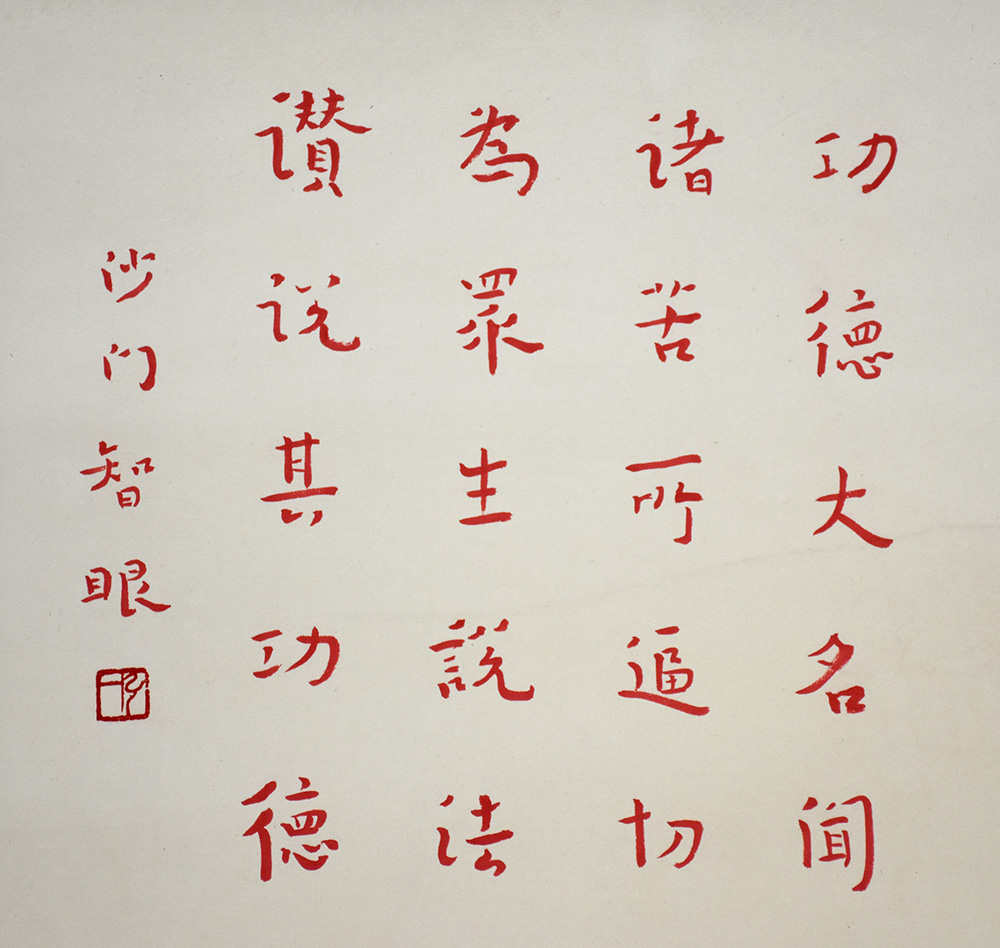 功德大名闻
诸苦所逼切
为眾生說法
讃说其功德
沙门智眼